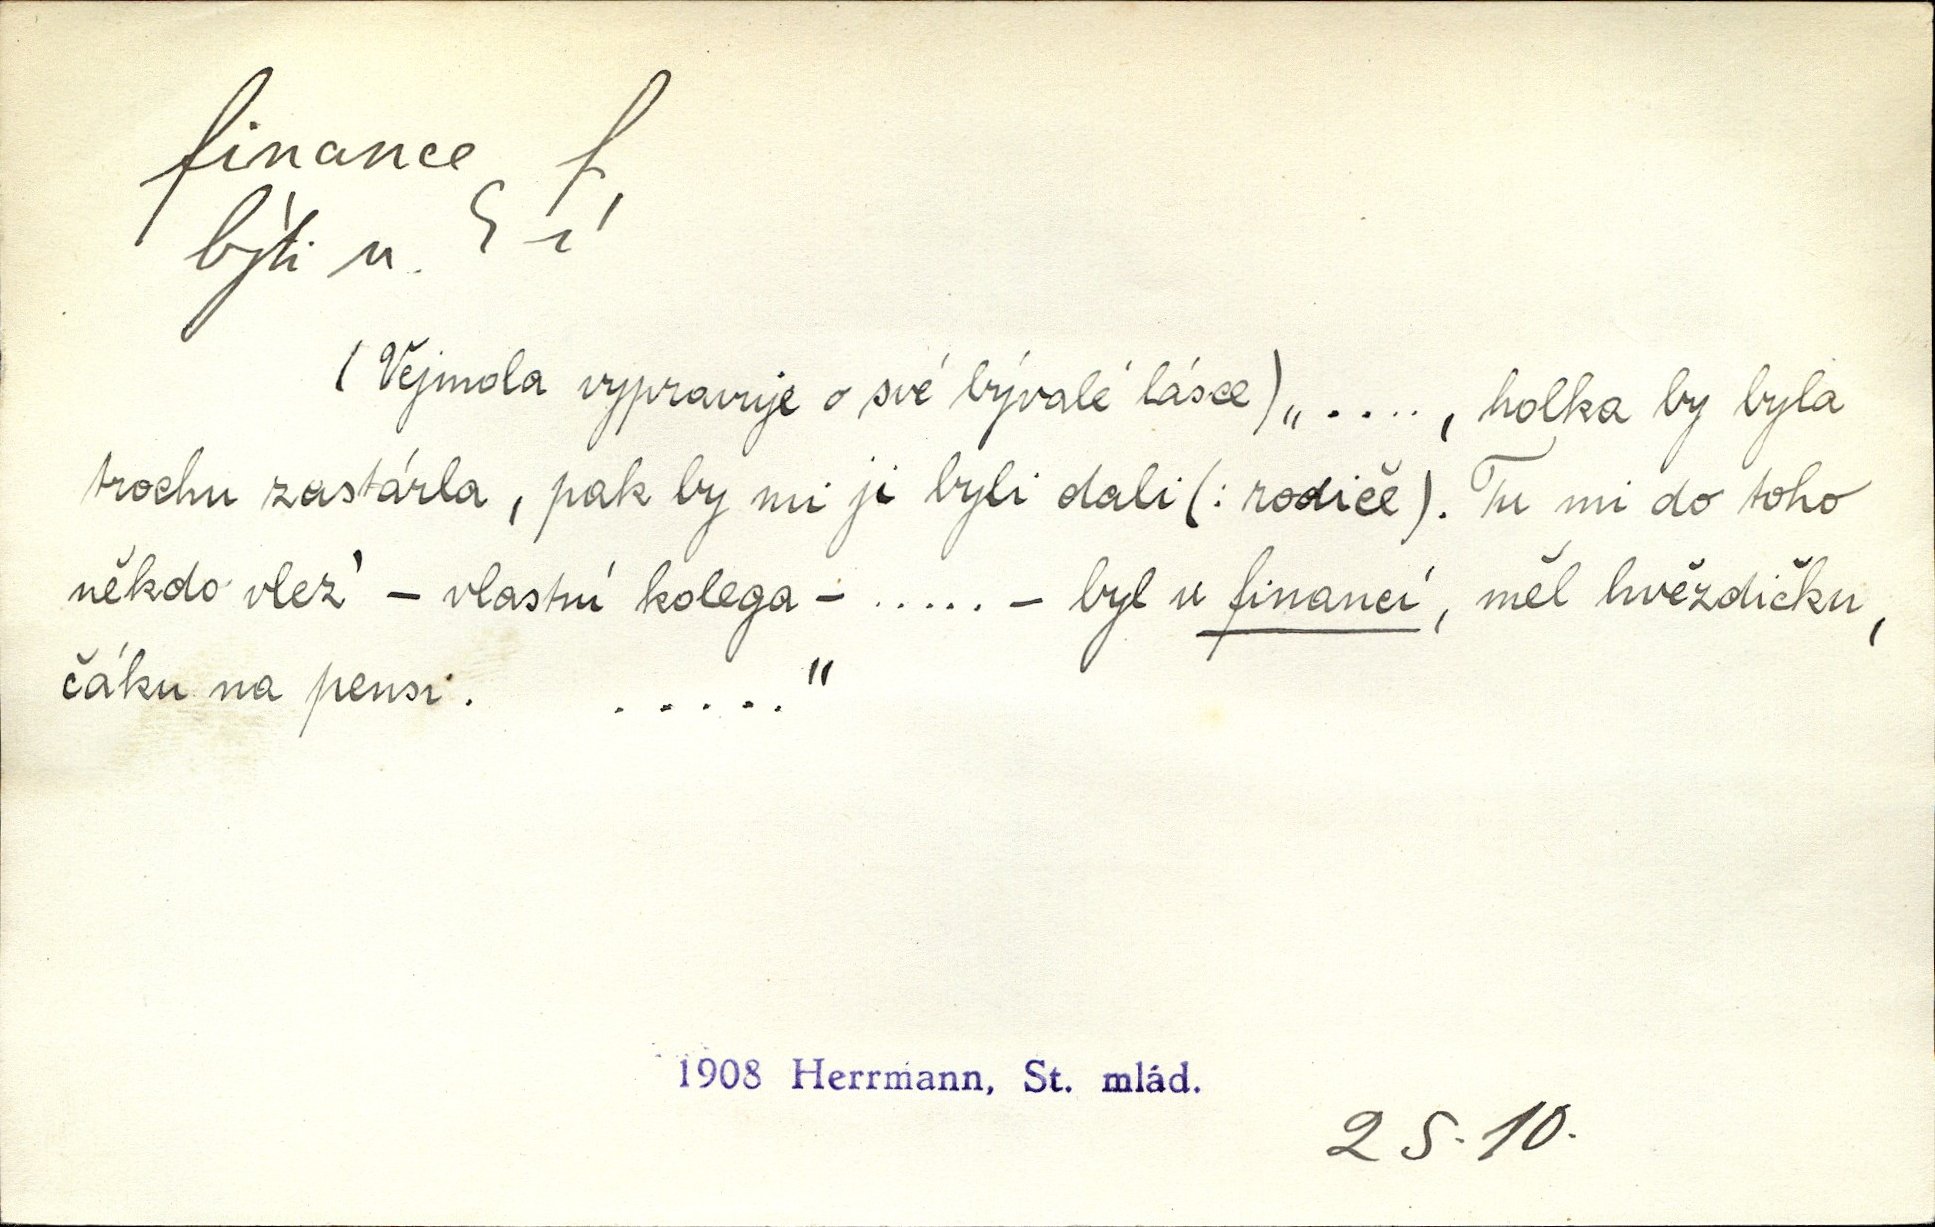 finance f,
býti u. § -í
(Vejmola vypravuje o své bývalé lásce) „....., holka by byla
trochu zastárla, pak by mi ji byli dali (: rodiče). Tu mi do toho
někdo vlez' – vlastní kolega – ..... – byl u financí, měl hvězdičku,
čáku na pensi. ....."
1908 Herrmann, St. mlád.
2 S. 10.